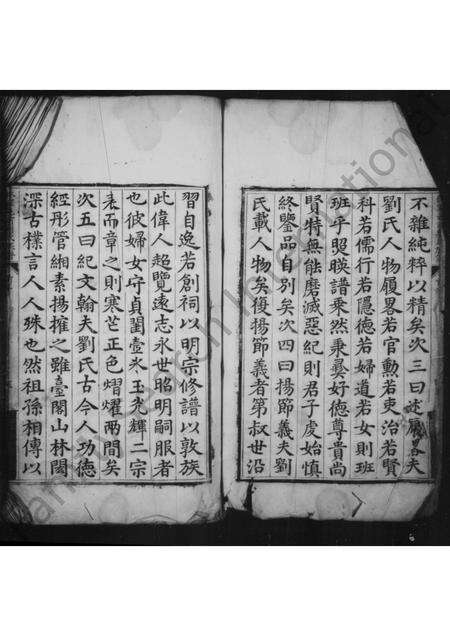 不雜純粹以精矣次三曰述履畧夫
劉氏人物履畧若官勲若吏治若賢
科若儒行若隱德若婦道若女則班
班乎照暎譜乘然秉彛好德尊賢尚
賢特無能磨滅惡紀則君子虔始慎
終鑒品自別矣次四曰揚節義夫劉
氏載人物矣復揚節義者第叔世沿
習自逸若創祠以明宗修譜以敦族
此偉人超覽遠志永世昭明嗣服者
也彼婦女守貞閨壼氷玉光輝二宗
表而章之則寒芒正色熠燿兩間矣
次五曰紀文翰夫劉氏古今人功德
經彤管緗素揚搉之雖臺閣山林閎
深古樸言人人殊也然祖孫相傳以